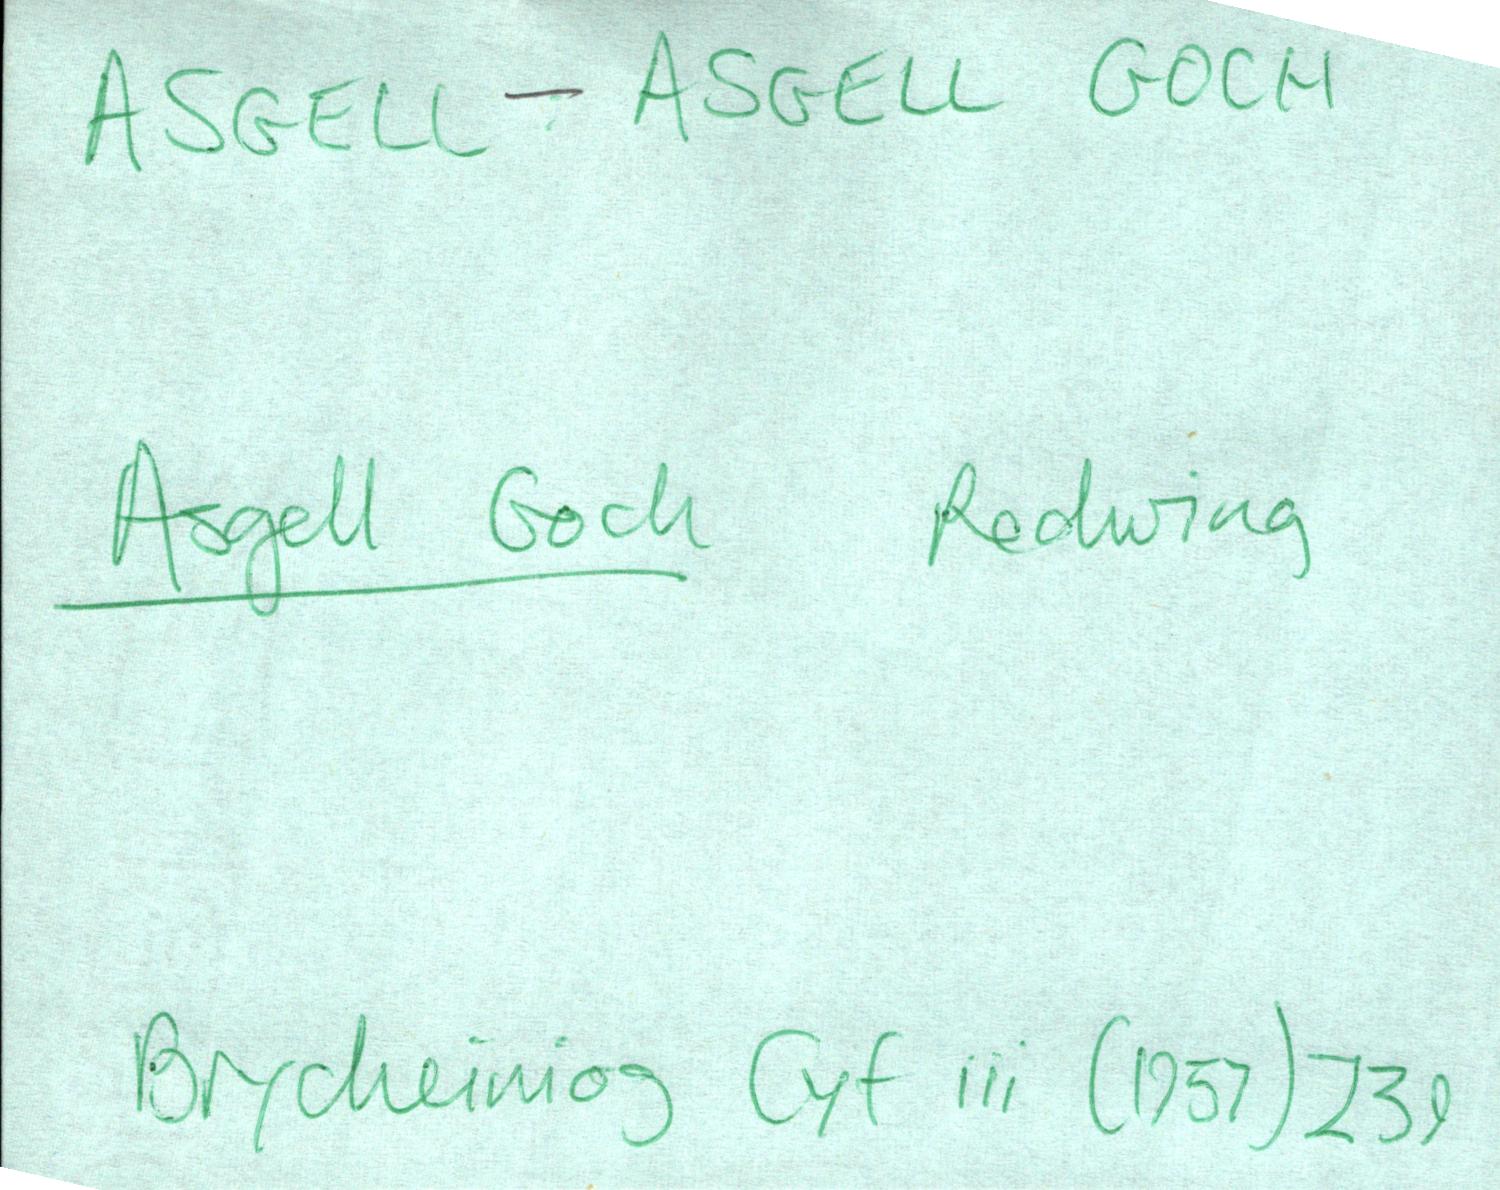 ASGELL - ASGELL GOCH
Asgell Goch Redwing
Brycheiniog Cyf iii (1957) 239